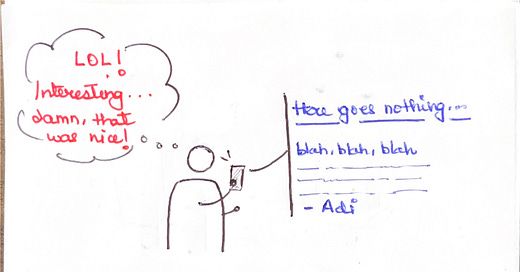 LOL!
Interesting...
damn, that
was nice!
Here goes nothing...
blah, blah, blah
- Adi